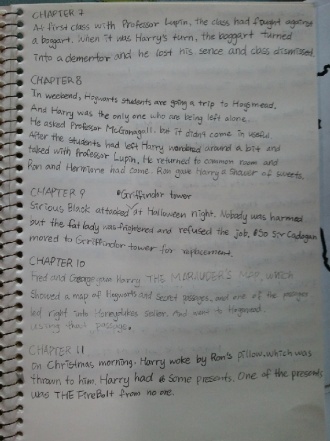 CHAPTER 7
At first class with Professor Lupin, the class had fought against
a boggart. When it was Harry's turn, the boggart turned
into a dementor and he lost his sence and class dismissed
CHAPTER 8
In weekend, Hogwarts students are going a trip to Hogsmead.
And Harry was the only one who are being left alone.
He asked Professor McGonagall. but it didn't come in useful
After the students had left Harry wondered around a bit and
talked with Professor Lupin, He returned to common room and
Ron and Hermione had come. Ron gave Harry a shower of sweets.
CHAPTER 9 Griffindor tower
Sirious Black attacked at Halloween night. Nobody was harmed
but the fat lady was frightened and refused the job. So Sir Cadogan
moved to Griffindor tower for replacement.
CHAPTER 10
Fred and George gave Harry THE MARAUDER'S MAP, which
showed a map of Hogwarts and secret passages, and one of the passages
led right into Honeydukes And went to Hogsmead
using that passage.
CHAPTER 11
On Christmas morning. Harry woke by Ron's pillow, which was
thrown to him. Harry had some presents. One of the presents
was THE FireBolt from no one.